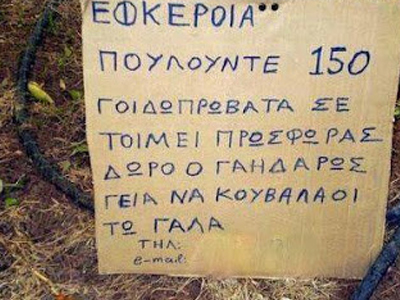 ΕΦΚΕΡΟΙΑ¨
ΠΟΥΛΟΥΝΤΕ 150
ΓΟΙΔΩΠΡΩΒΑΤΑ ΣΕ
ΤΟΙΜΕΙ ΠΡΩΣΦΩΡΑΣ
ΔΩΡΟ Ο ΓΑΗΔΑΡΩΣ
ΓΕΙΑ ΝΑ ΚΟΥΒΑΛΑΟΙ
ΤΩ ΓΑΛΑ
ΤΗΛ:
e-mail: